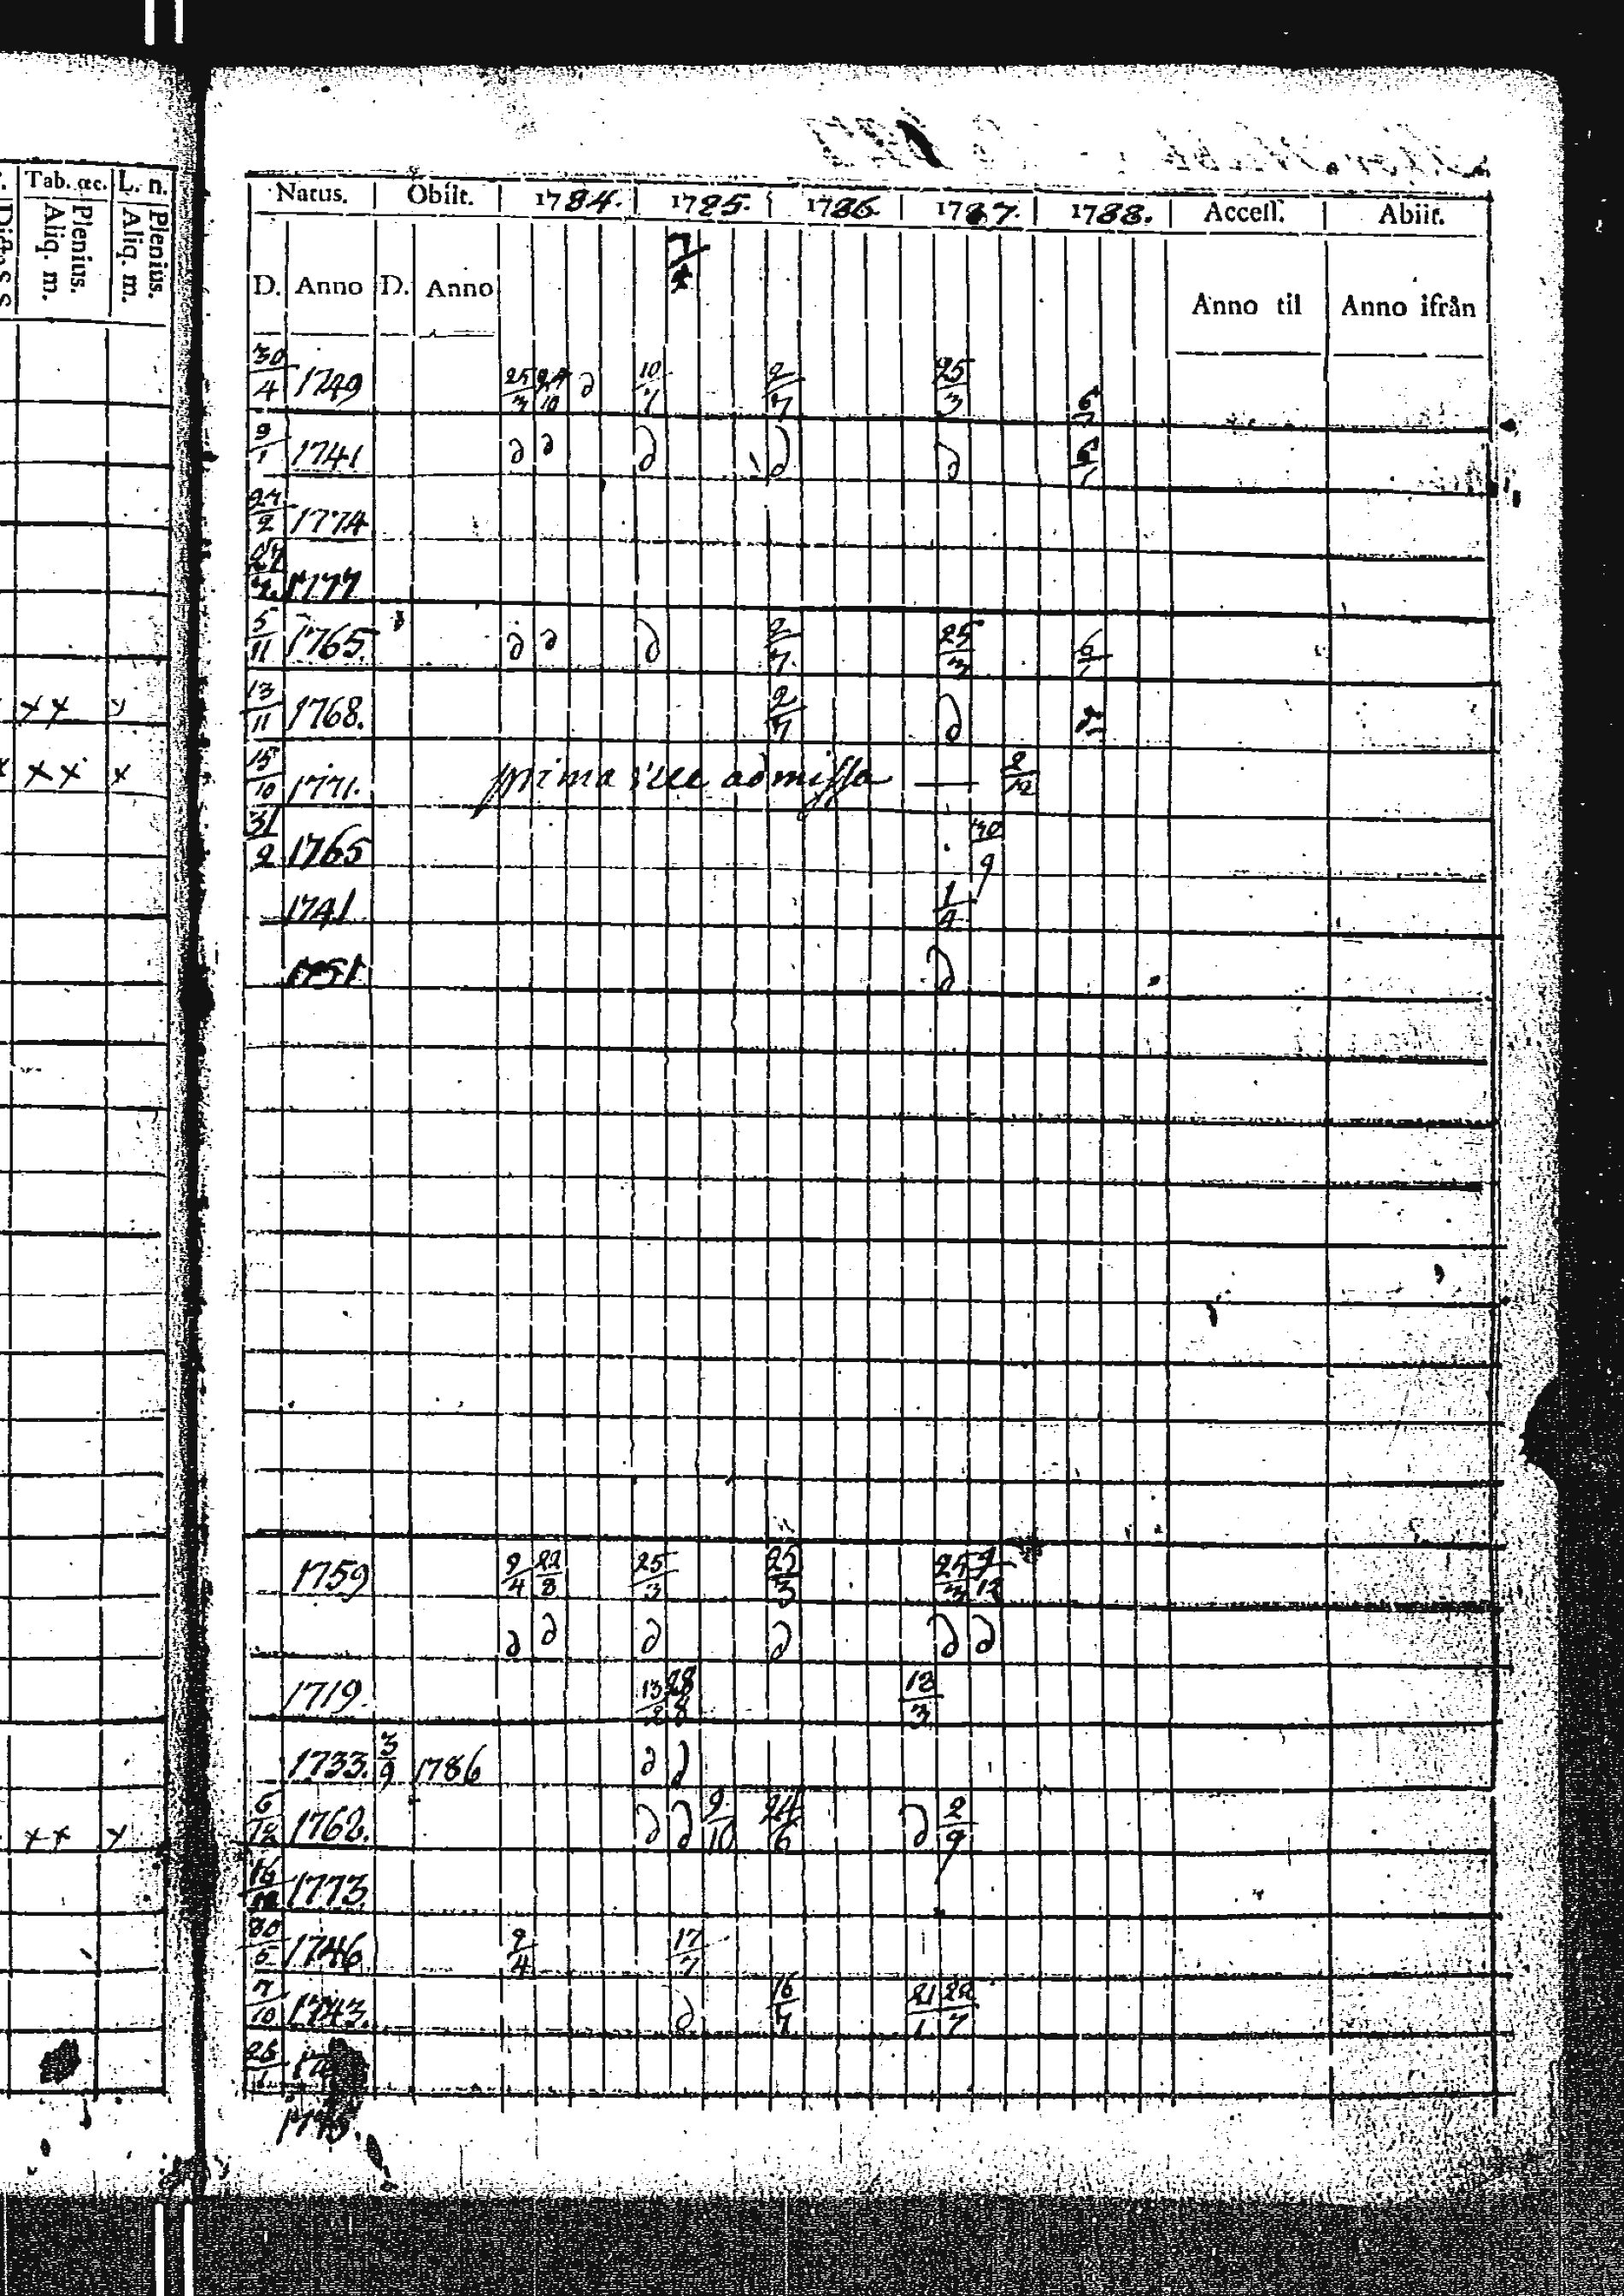 Tab. œc. L. n.
Plenius. Aliq. m. Plenius. Aliq. m.
Natus. Obiit. 1784. 1785. 1786. 1787. 1788. Accesf. Abiit.
D. Anno D. Anno Anno til Anno ifrån
30/4 1749 25/3 10/7 2/7 25/3
9/1 1741 ∂ ∂ ∂ ∂ ∂
1774
1777
5/11 1765 ∂ ∂ ∂ 2/7 25/3 6/1
x x 13/11 1768. 2/7 ∂
x x x 15/10 1771. prima vice admissa — 2/12
31/2 1765 30/9
1741 1/4
1751 ∂
1759 9/4 22/8 25/3 25/3
∂ ∂ ∂ ∂ ∂ ∂
1719. 28/8 12/3
1733. 3/9 1786 ∂ ∂
x x 6/12 1768. ∂ ∂ 9/10 24/6 ∂ 2/9
1773
30/5 1746 9/4 17/7
7/10 1743. ∂ 16/7 21/1 22/7